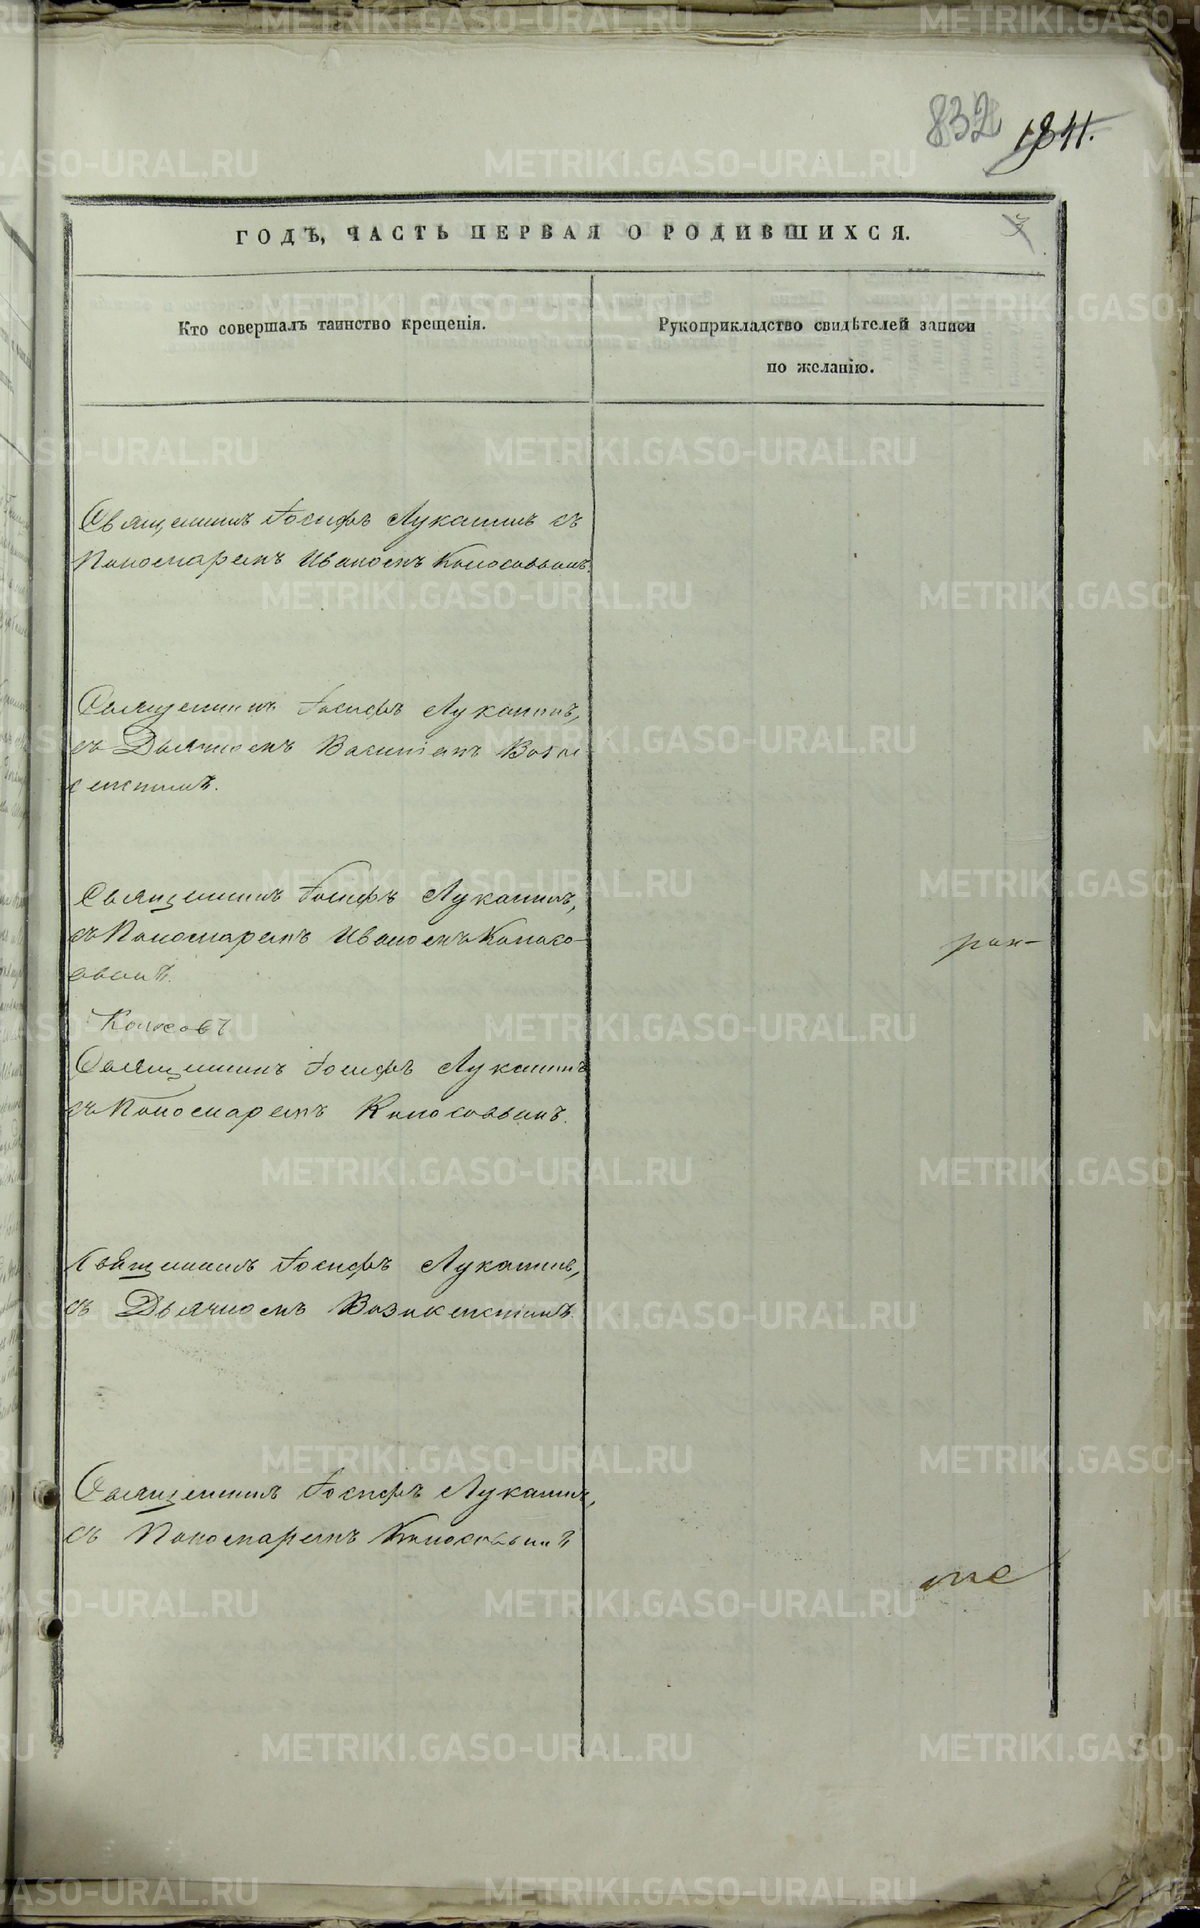 832 1841.
ГОДЪ, ЧАСТЬ ПЕРВАЯ О РОДИВШИХСЯ.
Кто совершалъ таинство крещенія.
Рукоприкладство свидѣтелей записи
по желанію.
Священникъ Іосифъ Лукашинъ съ
Пономаремъ Иваномъ Колосовымъ.
Священникъ Іосифъ Лукашинъ,
съ Дьячкомъ
Священникъ Іосифъ Лукашинъ,
съ Пономаремъ Иваномъ Колосо-
вымъ.
Священникъ Іосифъ Лукашинъ
съ Пономаремъ Колосовымъ.
Священникъ Іосифъ Лукашинъ,
съ Дьячкомъ Вознесенскимъ
Священникъ Іосифъ Лукашинъ,
съ Пономаремъ Колосовымъ
METRIKI.GASO-URAL.RU